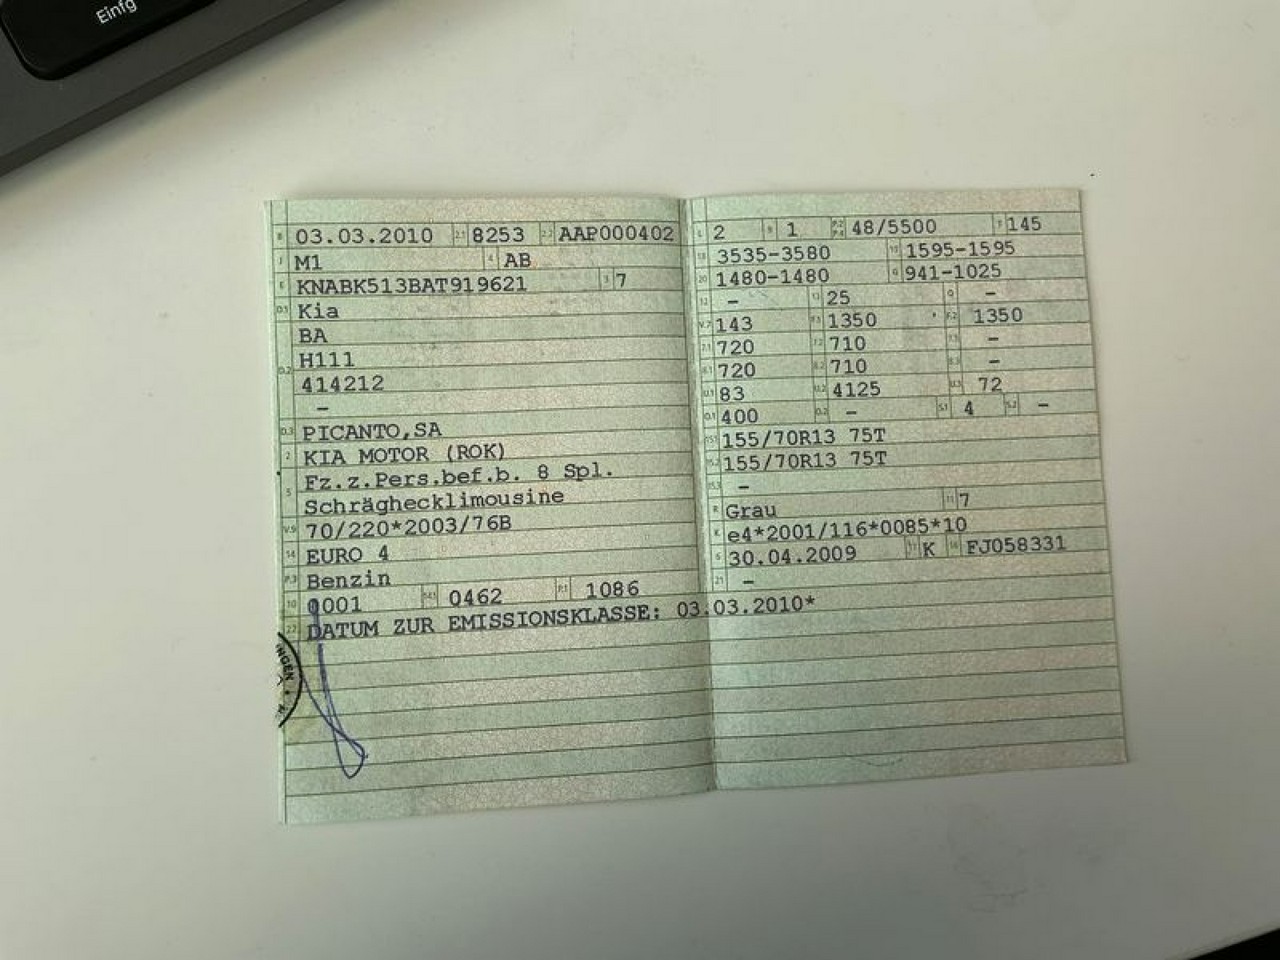 Einfg
B 03.03.2010 2.1 8253 2.2 AAP000402
J M1 4 AB
E KNABK513BAT919621 3 7
D.1 Kia
BA
D.2 H111
414212
–
D.3 PICANTO,SA
2 KIA MOTOR (ROK)
5 Fz.z.Pers.bef.b. 8 Spl.
Schräghecklimousine
V.9 70/220*2003/76B
14 EURO 4
P.3 Benzin
10 0001 14.1 0462 P.1 1086
22 DATUM ZUR EMISSIONSKLASSE: 03.03.2010*
INGEN
L 2 9 1 P.2 P.4 48/5500 T 145
18 3535-3580 19 1595-1595
20 1480-1480 G 941-1025
12 – 13 25 Q –
V.7 143 F.1 1350 F.2 1350
7.1 720 7.2 710 7.3 –
8.1 720 8.2 710 8.3 –
U.1 83 U.2 4125 U.3 72
O.1 400 O.2 – S.1 4 S.2 –
15.1 155/70R13 75T
15.2 155/70R13 75T
15.3 –
R Grau 11 7
K e4*2001/116*0085*10
6 30.04.2009 17 K 16 FJ058331
21 –